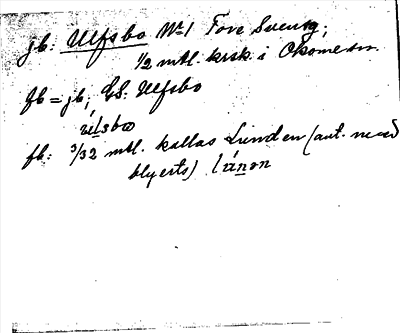 jb: Ulfsbo No 1 Tore Svensg;
1/2 mtl. krsk. i Okome sn.
fb = jb; GS: Ulfsbo
ùlsbo
fb: 3/32 mtl. kallas Lunden (ant. med
blyerts) lúnən